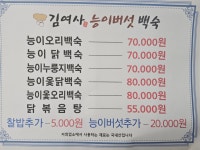 김여사 능이버섯 백숙
능이오리백숙 70.000원
능이닭백숙 70.000원
능이누룽지백숙 70.000원
능이옻닭백숙 80.000원
능이옻오리백숙 80.000원
닭볶음탕 55.000원
찰밥추가 -5.000원 능이버섯추가 -20.000원